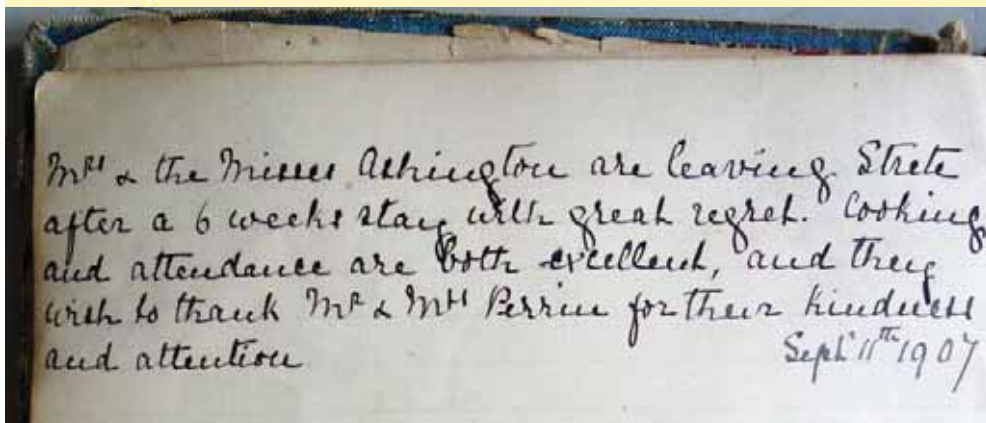 Mrs & the Misses Ashington are leaving Strete
after a 6 weeks stay with great regret. Cooking
and attendance are both excellent, and they
wish to thank Mr & Mrs Perrin for their kindness
and attention
Sept 11th 1907